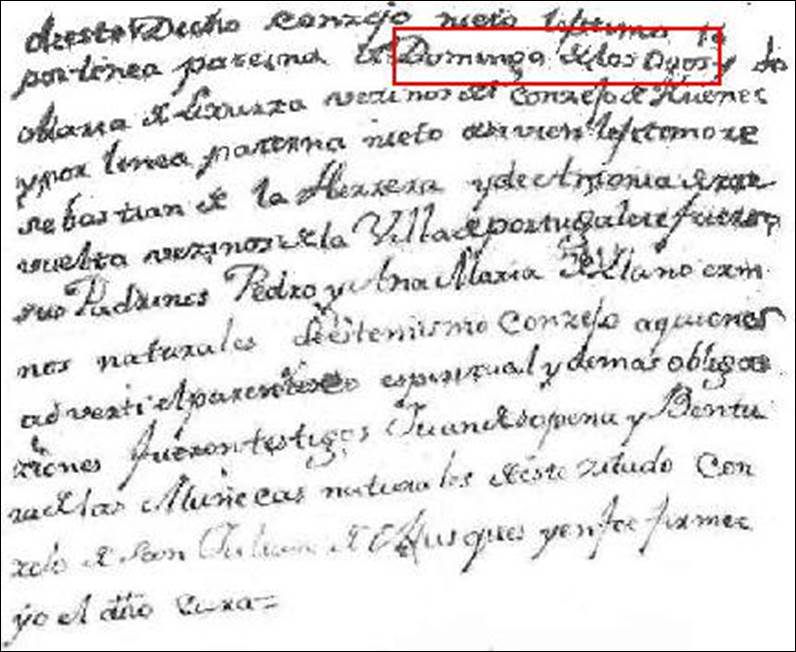 de este Dicho conzejo nieto lejitimo
por linea paterna de Domingo de los Ojos y de
Maria de vezinos del Conzejo de Güeñes
y por linea paterna nieto lejitimo de
Sebastian de la Herrera y de Antonia de rre
vuelta vezinos de la Villa de portugalete fueron
sus Padrinos Pedro y Ana Maria de Llano erm
nos naturales de este mismo Conzejo a quienes
adverti el parentesco espiritual y demas obliga
ziones fueron testigos Juan de sopena y Bentu
ra de las Muñecas naturales de este zitado Con
zejo de San Julian de Musques y en fee firme
yo el dho Cura=